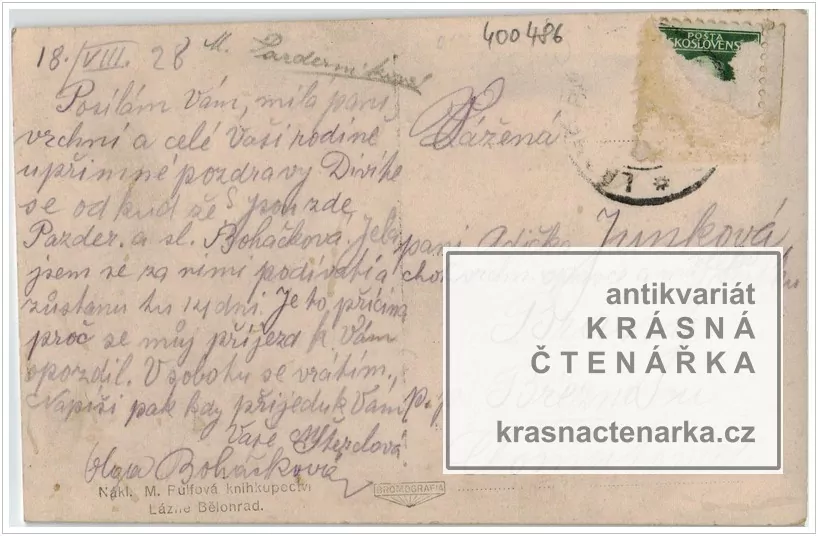 400486
18./VIII. 28
POŠTA
Posílám Vám, milá paní
vrchní a celé Vaší rodině
upřímné pozdravy Divíte
se odkud že jsou zde
Pazder. a sl. Boháčková. Jela
jsem se za nimi podívati a
zůstanu tu 14 dní. Je to příčina
proč se můj příjezd k Vám
opozdil. V sobotu se vrátím.,
Napíši pak kdy přijedu k Vám
Vaše
Olga Boháčková
Vážená
paní Junková,
antikvariát
KRÁSNÁ
ČTENÁŘKA
krasnactenarka.cz
Nákl. M. Fulfová knihkupectví
Lázně Bělohrad.
BROMOGRAFIA